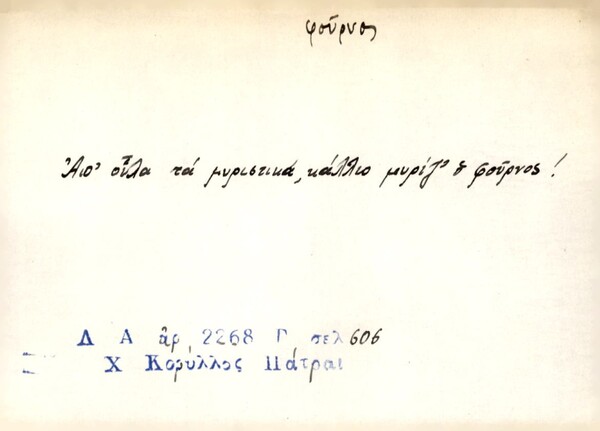 φοῦρνος
Ἀπ' οὗλα τά μυριστικά, κάλλιο μυρίζ' ὁ φοῦρνος!
Λ Α ἀρ. 2268 Γ σελ 606
Χ Κορύλλος Πάτραι